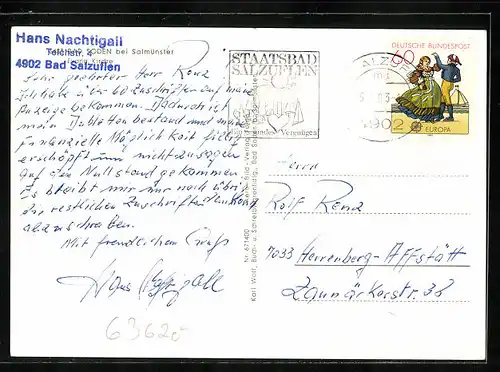 Hans Nachtigall
Teichstr. 4
4902 Bad Salzuflen
BAD SODEN bei Salmünster
Sehr geehrter Herr Renz
Ich habe über 60 Zuschriften auf meine
Anzeige bekommen. Dadurch ist
mein Doubletten bestand und meine
finanzielle Möglichkeit fast
erschöpft um nicht zu sagen
auf den Nullstand gekommen.
Es bleibt mir nur noch übrig
die restlichen Zuschriften
abzuschreiben.
Mit freundlichem Gruß
Hans Nachtigall
63620
STAATSBAD
SALZUFLEN
DEUTSCHE BUNDESPOST
60
EUROPA
4902
Nr. 671400
Karl Wolf, Buch- u. Schreibwarenhdlg., Bad Soden
Herrn
Rolf Renz
7033 Herrenberg-Affstätt
Zaunäckerstr. 38